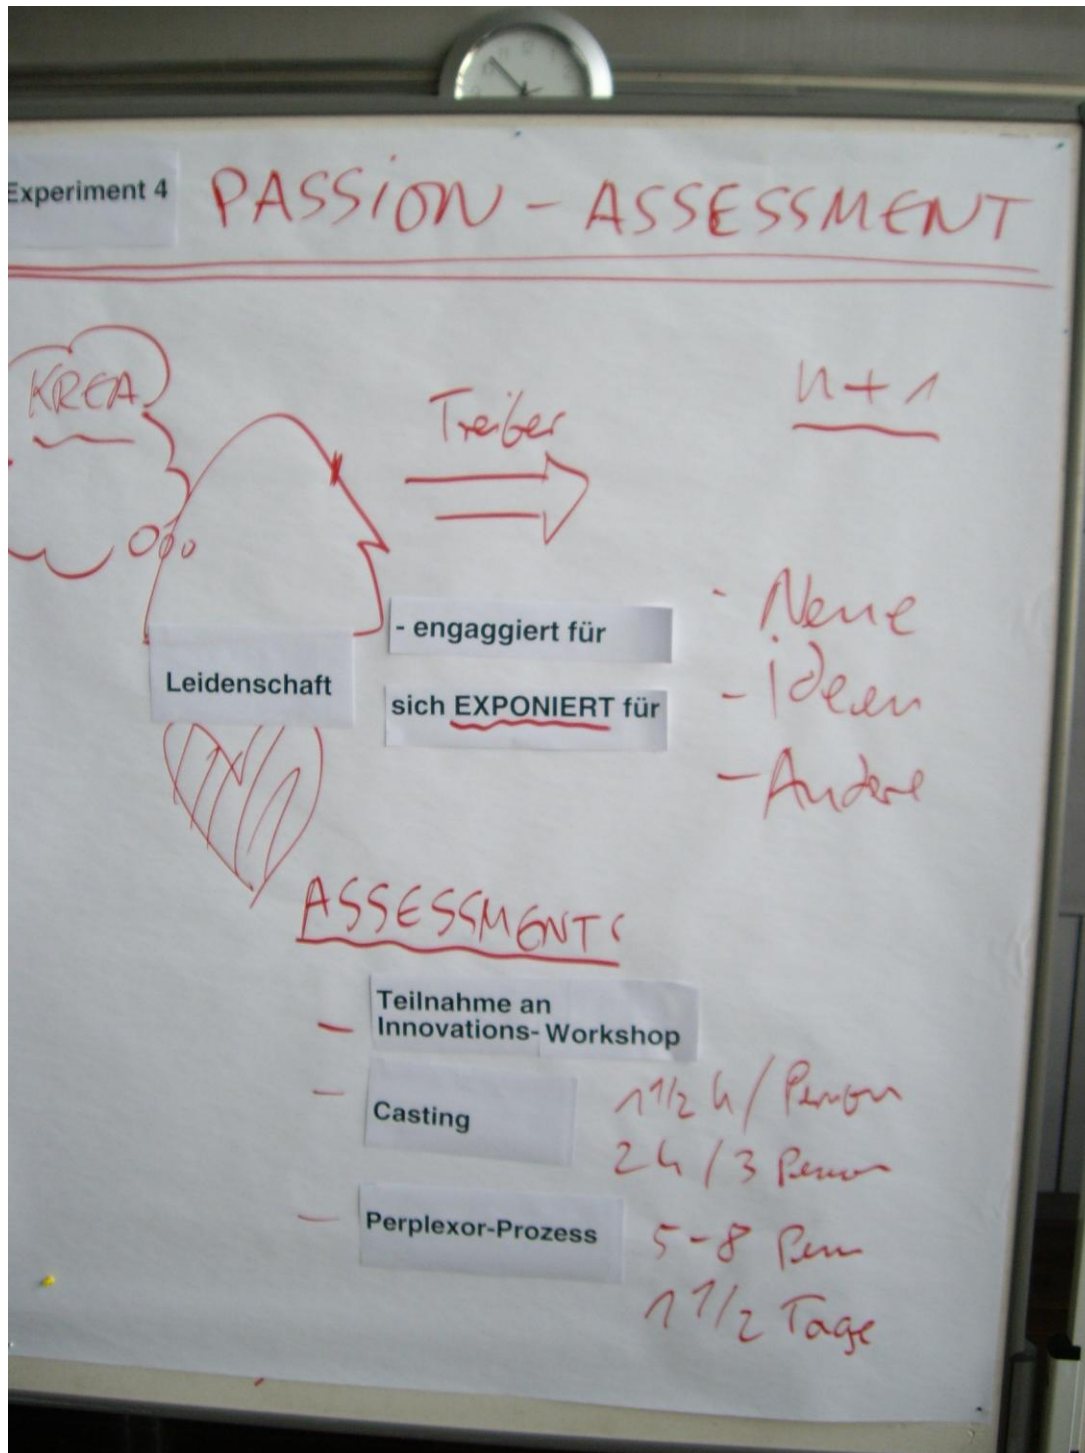 Experiment 4 PASSiON - ASSESSMENT
KREA
Treiber
n + 1
- engaggiert für
- Neue
Leidenschaft
sich EXPONIERT für
- ideen
- Andere
ASSESSMENTS
- Teilnahme an
Innovations-Workshop
- Casting
1 1/2 h / Person
2h / 3 Person
- Perplexor-Prozess
5-8 Pers
1 1/2 Tage